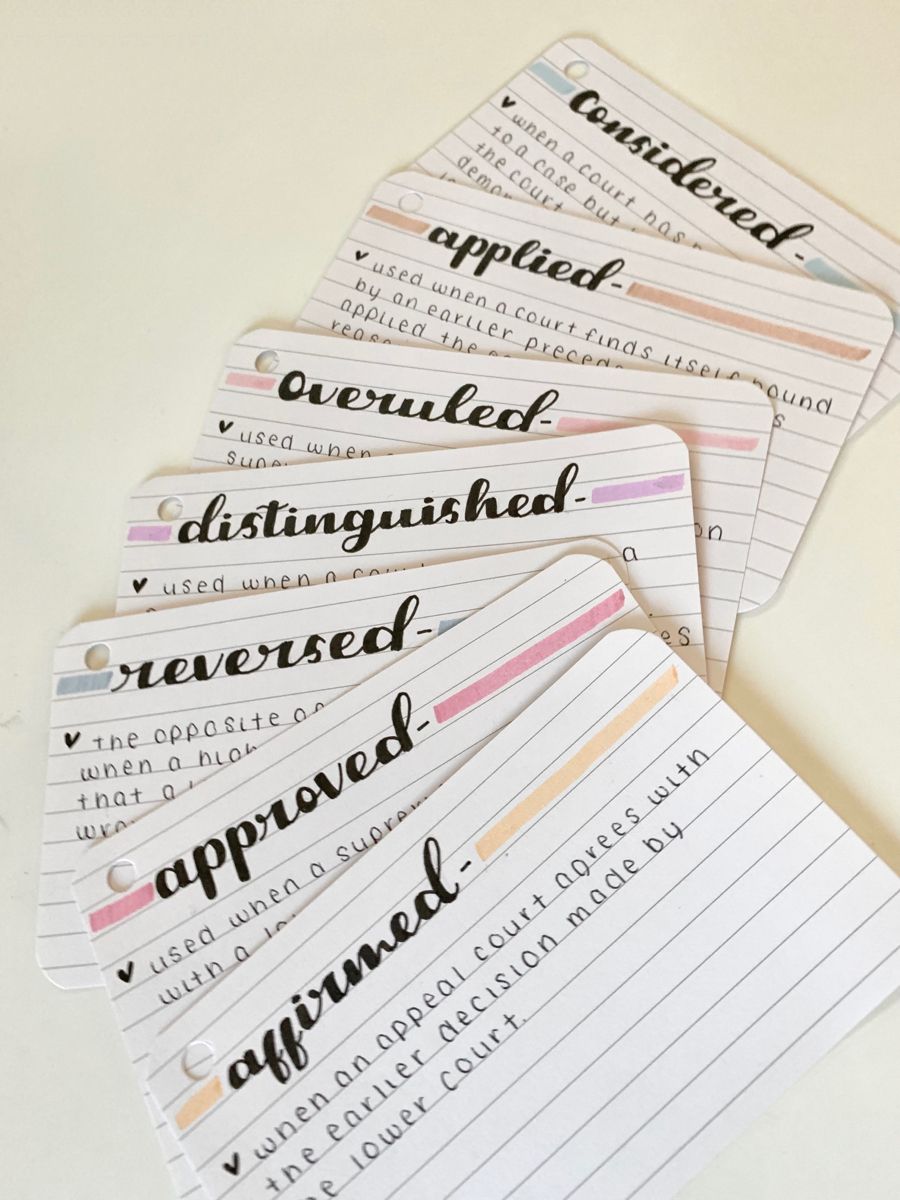 considered -
♥ when a court has
to a case but
the court
applied -
♥ used when a court finds itself bound
by an earlier
applied the
overuled -
♥ used when
distinguished -
♥ used when a
on
a
reversed -
♥ the opposite
when a high
that a
approved -
♥ used when a supre
with a
affirmed -
♥ when an appeal court agrees with
the earlier decision made by
lower court.